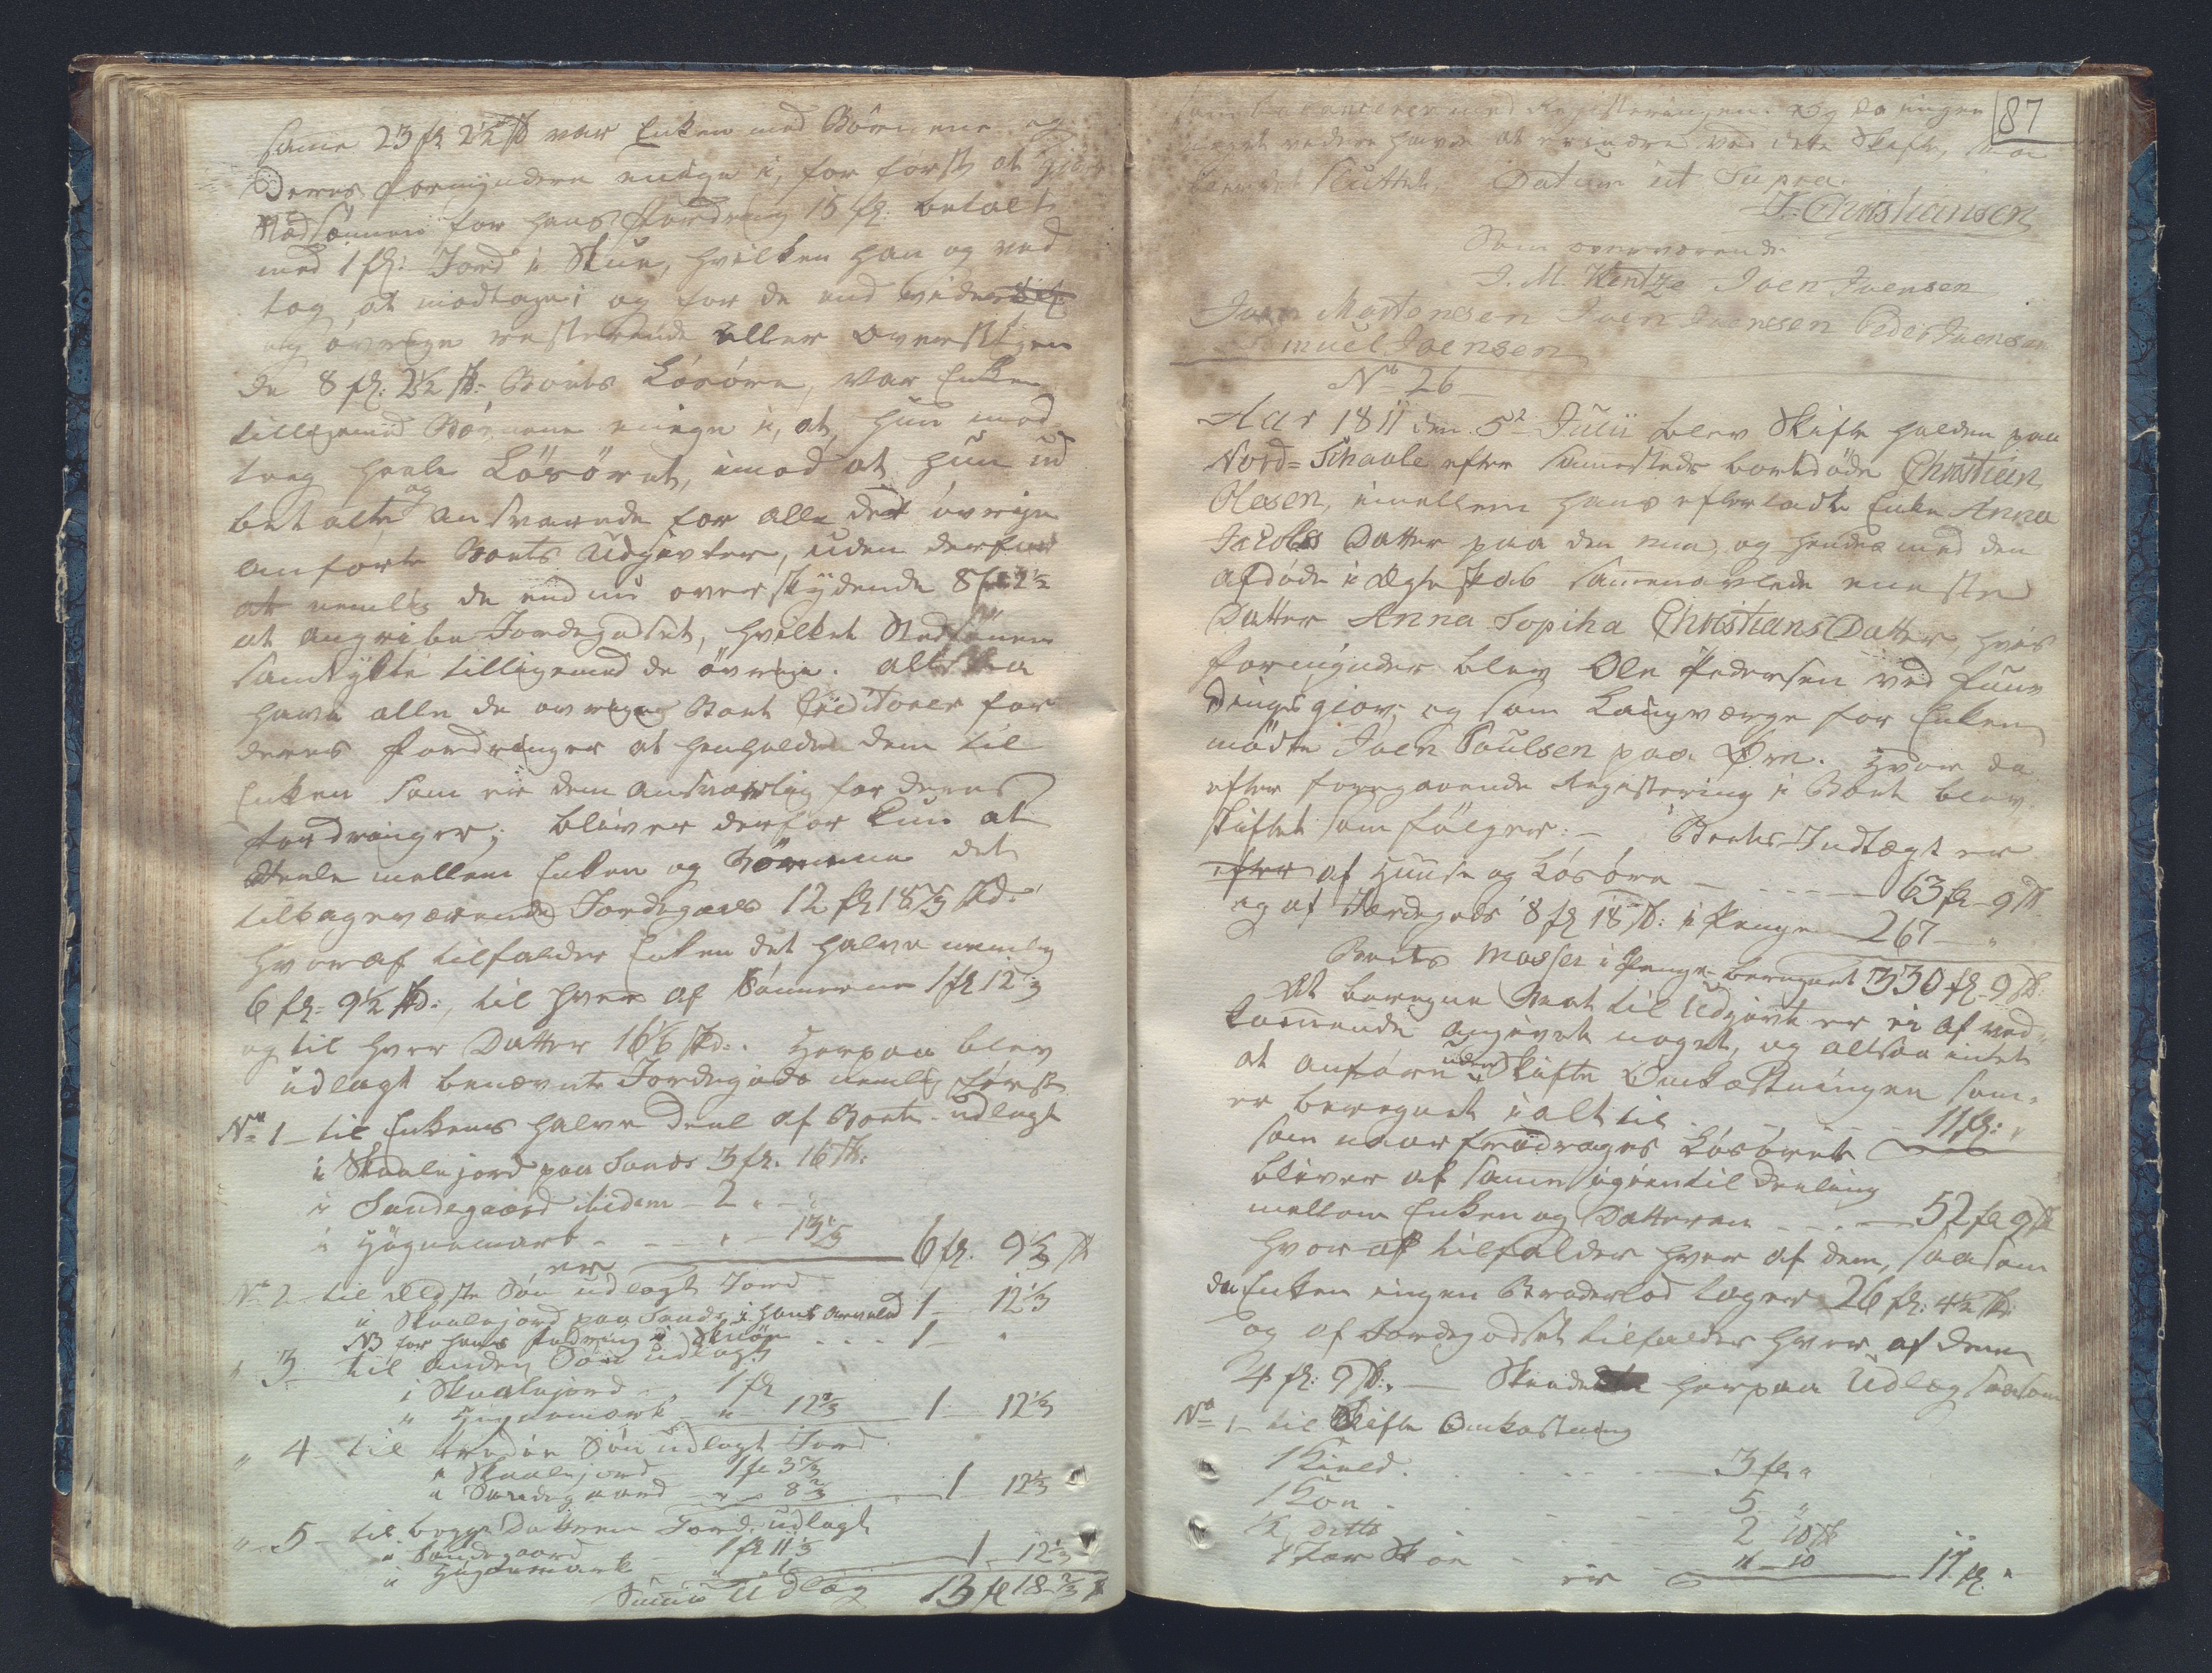 samme 23 fl 2½ sk var Enken med Börnene og
Deres Formyndere enige i, for först at gjör
Stedsönnen for hans Fordring 15 fl: betalt
med 1 fl: Jord i Skue, hvilken han og ved
tog at modtage; og for de end videre
og övrige resterende eller overstigen
de 8 fl: 2½ sk: Boets Lösöre, var Enken
tilligemed Börnene enige i, at hun mod
tog heele Lösöret, imod at hun ud
betalte og ansvarede for alle det övrige
anförte Boets Udgivter, uden derfor
at nemlig de endnu overskydende 8 fl 2½
at angribe Jordegodset, hvilket Stedsönnen
samtykte tilligemed de övrige. Altsaa
have alle de övrige Boets Creditorer for
deres Fordringer at henholde dem til
Enken som er dem ansvarlig for deres
fordringer; bliver derfor kun at
deele mellem Enken og Börnene det
tilbageværende Jordegods 12 fl 18⅔ sk:
hvoraf tilfalder Enken det halve nemlig
6 fl: 9⅓ sk:, til hver af Sönnerne 1 fl 12⅓
og til hver Datter 16⅙ sk: Herpaa blev
udlagt benævnte Jordegods nemlig först
No 1 til Enkens halve Deel af Boet udlagt
i Skaalejord paa Sand 3 fl. 16 sk:
i Sandegaard ibidem - 2 " - "
i Högnemark - - " - 13⅓
er 6 fl. 9⅓ sk
No 2 til Eldste Sön udlagt Jord
i Skaalejord paa Sand i hans Arvelod 1 - 12⅓
NB for hans Fordring i Skuöe - - - 1 - "
" 3 - til anden Sön udlagt
i Skaalejord - " 1 fl
" Högnemark - " - 12⅓ 1 - 12⅓
" 4 - til tredie Sön udlagt Jord
i Skaalejord 1 fl 3⅔
i Sandegaard - " - 8⅔ 1 12⅓
" 5 - til begge Döttrene Jord udlagt
i Sandegaard - 1 fl 11⅓
i Högnemark - " 1 1 - 12⅓
Summa Udlæg 13 fl 18⅔ sk
87
som balancerer med Registeringen. Og da ingen
meere videre havde at erindre ved dette Skifte, var
samme sluttet. Datum ut Supra.
J. Christiansen
Som overværende
J. M. Wentze Joen Joensen
Joen Mortensen Joen Joensen Peder Joensen
Samuel Joensen
No 26
Aar 1811 den 5te Julii blev Skifte holden paa
Nord=Schaale efter sammesteds bortdöde Christian
Olesen, imellem hans efterladte Enke Anna
Jacobs Datter paa den ene, og hendes med den
afdöde i Ægteskab sammenavlede eneste
Datter Anna Sopiha Christians Datter, hvis
Formynder blev Ole Pedersen ved Fune
Dingsgiov; og som Laugværge for Enken
mödte Joen Poulsen paa Öre. Hvor da
efter foregaaende Registering i Boet blev
skiftet som fölger: - Boets Indtægt er
efter af Huuse og Lösöre - - - - 63 fl - 9 sk
og af Jordegods 8 fl 18 sk: i Penge 267 - "
Boets Massa i Penge beregnet 330 fl - 9 sk:
At beregne Boet til Udgivt er ei af ved-
kommende angivet noget, og altsaa intet
at anföre uden Skifte Omkostningen som
er beregnet i alt til - - - 11 fl: "
som naar fradrages Lösöret
bliver af samme igien til Deeling
mellem Enken og Datteren - - - 52 fl 9 sk
hvoraf tilfalder hver af dem, saasom
da Enken ingen Broderlod tager 26 fl: 4½ sk:
og af Jordegodset tilfalder hver af dem
4 fl: 9 sk: - Skeede herpaa Udlæg saasom
No 1 - til Skifte Omkostning
1 Kield - - - 3 fl "
1 Koe - - - 5 "
½ ditto - - - 2 - 10 sk
1 Faar Skin - - " - 10
er 11 fl. "